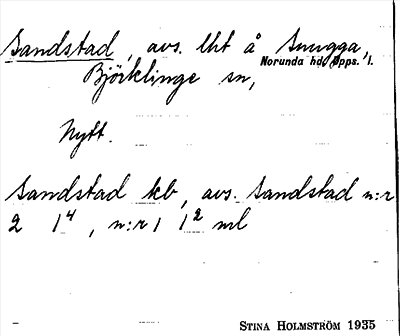 Sandstad, avs. lht å Snugga,
Norunda hd, Upps. l.
Björklinge sn,
Nytt.
Sandstad kb, avs. Sandstad n:r
2 1⁴, n:r 1 1² ml
STINA HOLMSTRÖM 1935